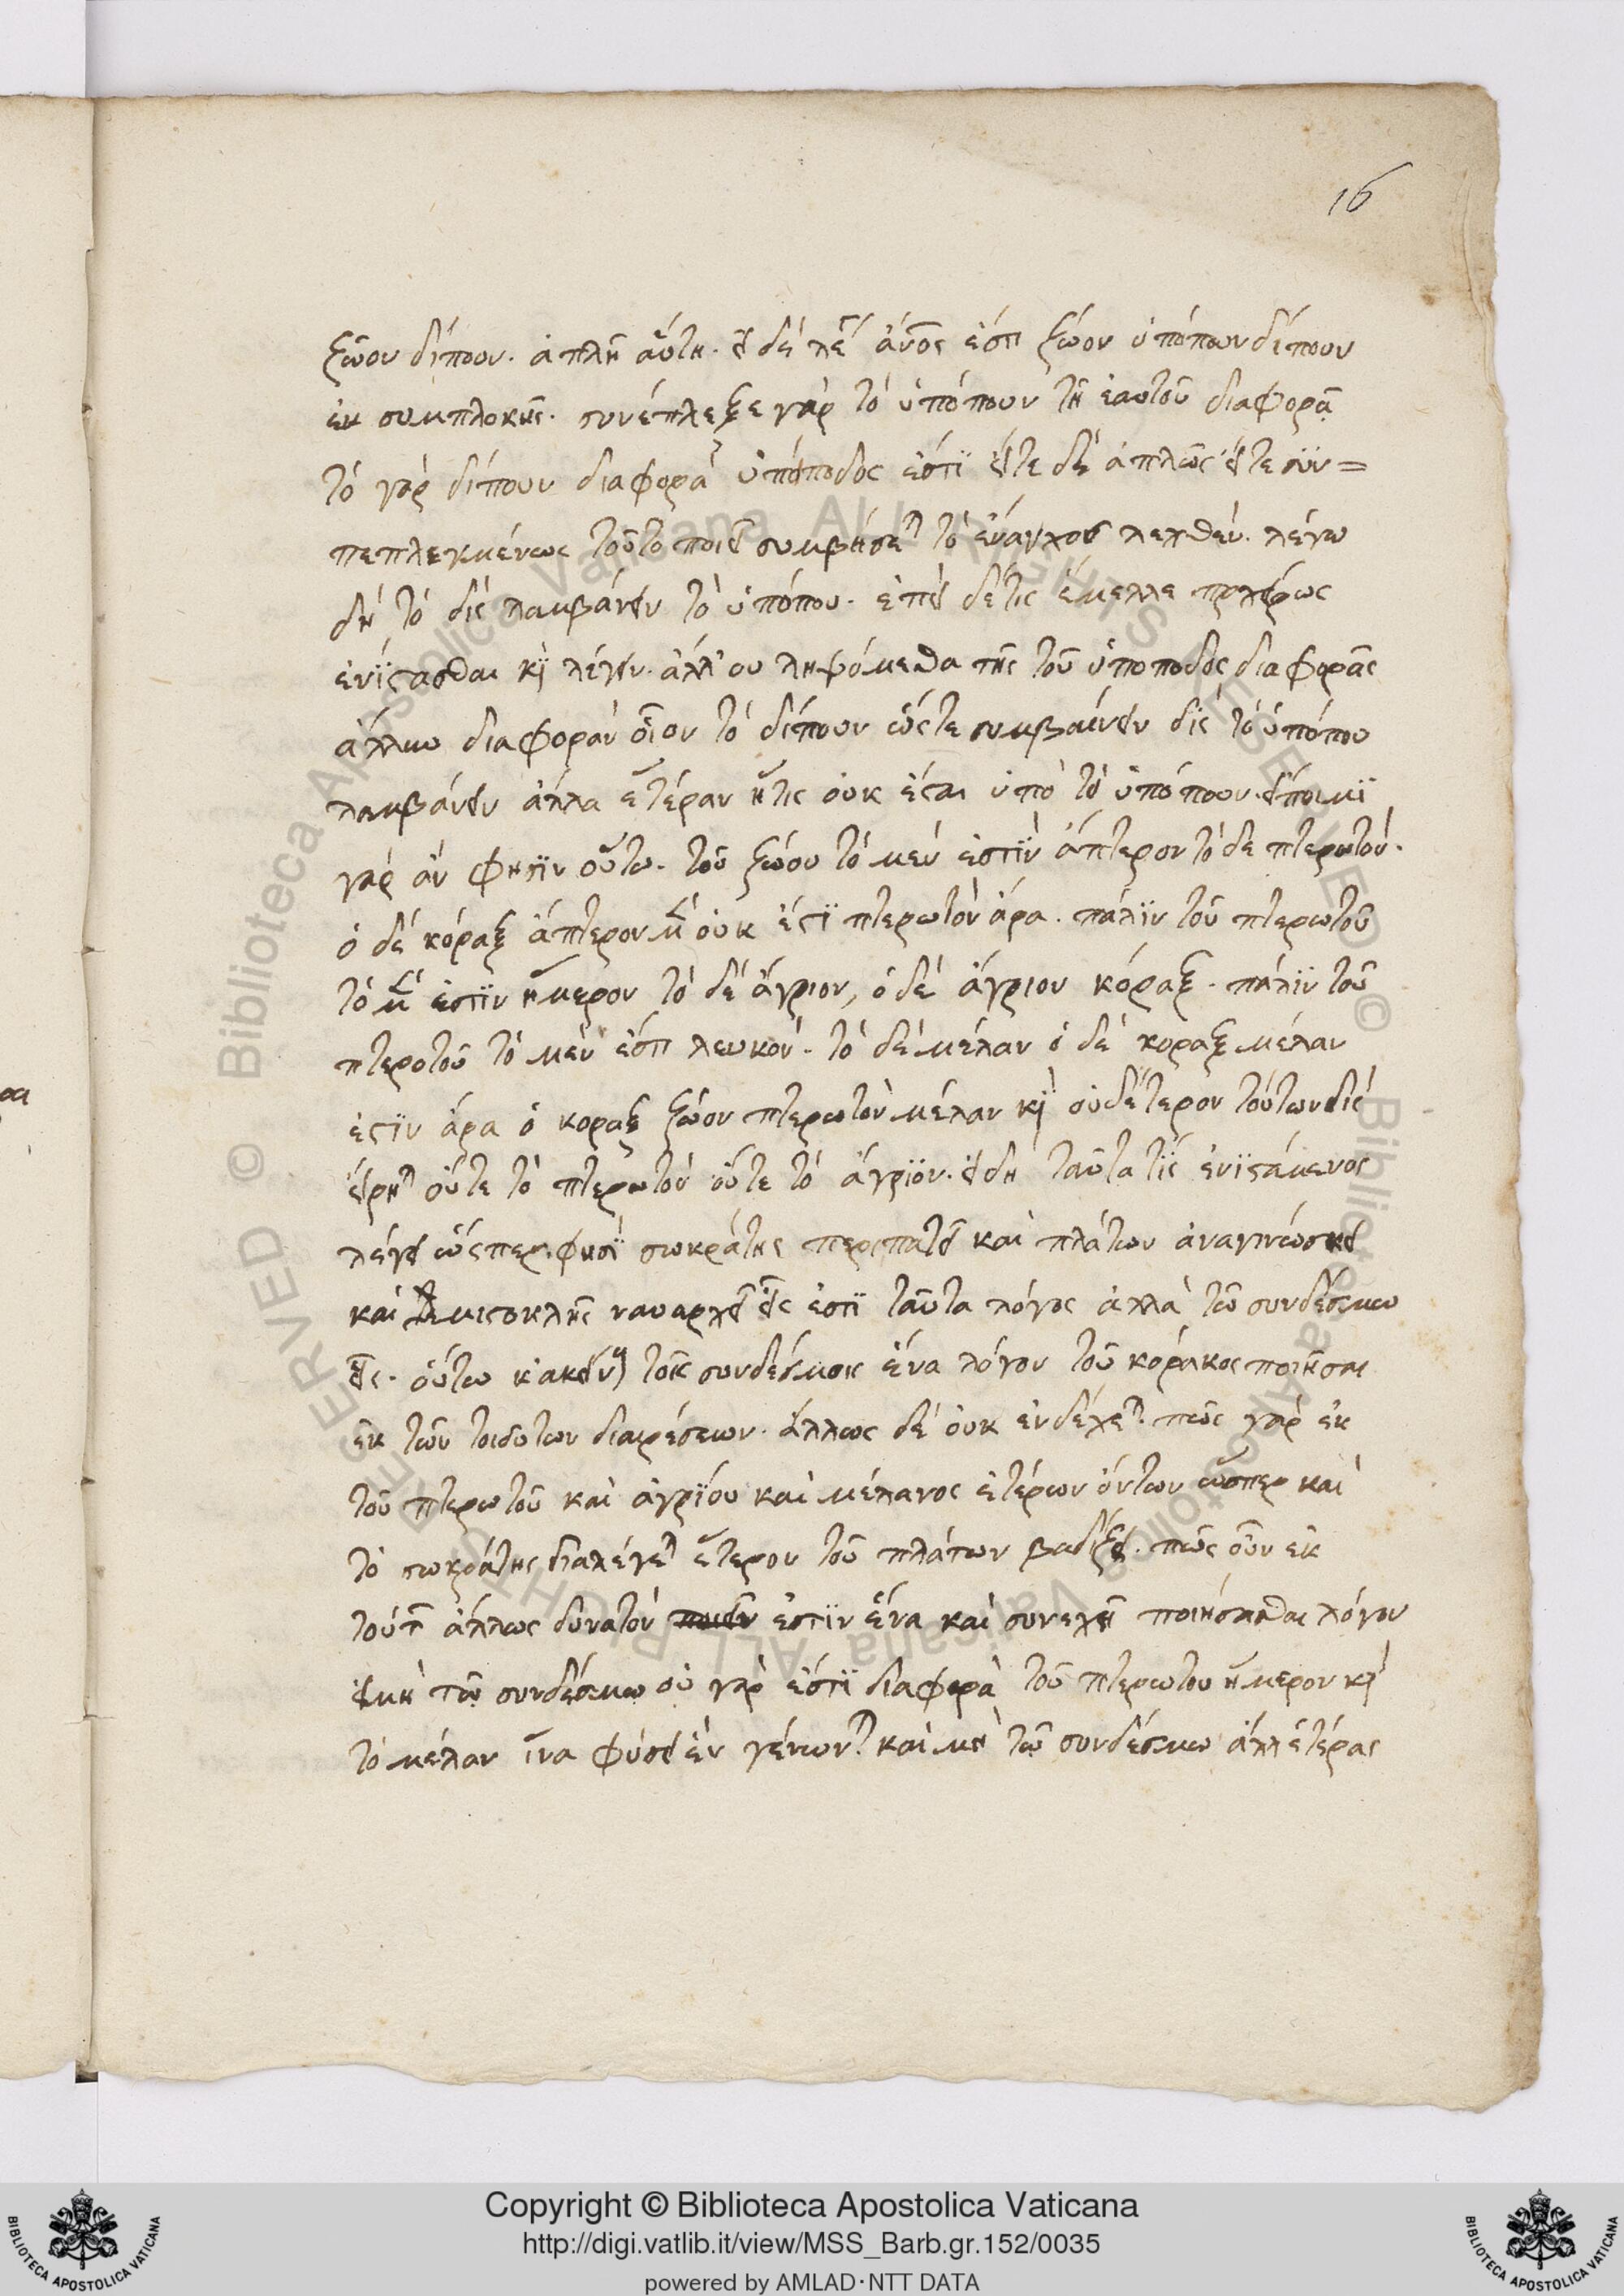 16
ζῶον δίπουν. ἁπλῆ αὕτη. εἰ δὲ λέγει ἄνος ἐστι ζῶον ὑπόπουν δίπουν
ἐκ συμπλοκῆς. συνέπλεξε γὰρ τὸ ὑπόπουν τῆ ἑαυτοῦ διαφορᾶ
τὸ γὰρ δίπουν διαφορὰ ὑπόποδος ἐστϊ εἴτε δὲ ἁπλῶς εἴτε σϋν=
πεπλεγμένως τοῦτο ποιεῖ συμβήσεται τὸ λέγω
δὴ τὸ δὶς λαμβάνειν τὸ ὑπόπου. ἐπεὶ δέ τις ἔμελλε
ἐνίστασθαι κὶ λέγειν. ἀλλ' ου ληψόμεθα τῆς τοῦ ὑποποδος διαφορᾶς
ἄλλην διαφορὰν οἷον τὸ δίπουν ὥςτε συμβαίνειν δὶς τὸ ὑπόπου
λαμβάνειν ἀλλα ἑτέραν ἥτις οὐκ ἔσται ὑπὸ τὸ ὑπόπουν. εἴποιμϊ
γὰρ ἂν φησϊν οὕτω. τοῦ ζώου τὸ μέν ἐστϊν ἄπτερον τὸ δε πτερωτόν.
ὁ δὲ κόραξ ἄπτερον μὲν οὐκ ἔστϊ πτερωτὸν ἄρα. πάλϊν τοῦ πτερωτοῦ
τὸ μέν ἐστϊν ἥμερον τὸ δὲ ἄγριον, ὁ δὲ ἄγριον κόραξ. πάλϊν τοῦ
πτεροτοῦ τὸ μὲν ἐστι λευκόν. τὸ δὲ μέλαν ὁ δὲ κοραξ μέλαν
ἐστϊν ἄρα ὁ κοραξ ζῶον πτερωτὸν μέλαν κὶ οὐδέτερον τούτων δὶς
εἴρηται οὔτε τὸ πτερωτὸν οὔτε τὸ ἄγρϊον. εἰ δὴ ταῦτα τϊς ἐνϊστάμενος
λέγει ὥςπερ φησϊ σωκράτης περιπατεῖ καὶ πλάτων ἀναγινώσκει
καὶ θεμιστοκλῆς ναυαρχεῖ εἷς ἐστϊ ταῦτα λόγος ἀλλὰ τῶ συνδέσμω
εἷς. οὕτω κἀκεῖνα τοῖς συνδέσμοις ἕνα λόγον τοῦ κόρακος ποιῆσαι
ἐκ τῶν τοιούτων διαιρέσεων. ἄλλως δὲ οὐκ ἐνδέχεται. πῶς γὰρ ἐκ
τοῦ πτερωτοῦ καὶ ἀγρϊου καὶ μέλανος ἑτέρων ὄντων ὥσπερ καὶ
τὸ σωκράτης διαλέγεται ἕτερον τοῦ πλάτων βαδίζει. πῶς οὖν ἐκ
τούτων ἄλλως δυνατόν ποιεῖν ἐστϊν ἕνα καὶ συνεχῆ ποιήσασθαι λόγον
εἰ μὴ τῷ συνδέσμω οὐ γὰρ ἐστϊ διαφορὰ τοῦ πτερωτου ἥμερον κὶ
τὸ μέλαν ἵνα φύσει ἓν γένωνται καὶ μὴ τῷ συνδέσμω ἀλλ ἑτέρας
Copyright © Biblioteca Apostolica Vaticana
http://digi.vatlib.it/view/MSS_Barb.gr.152/0035
powered by AMLAD·NTT DATA